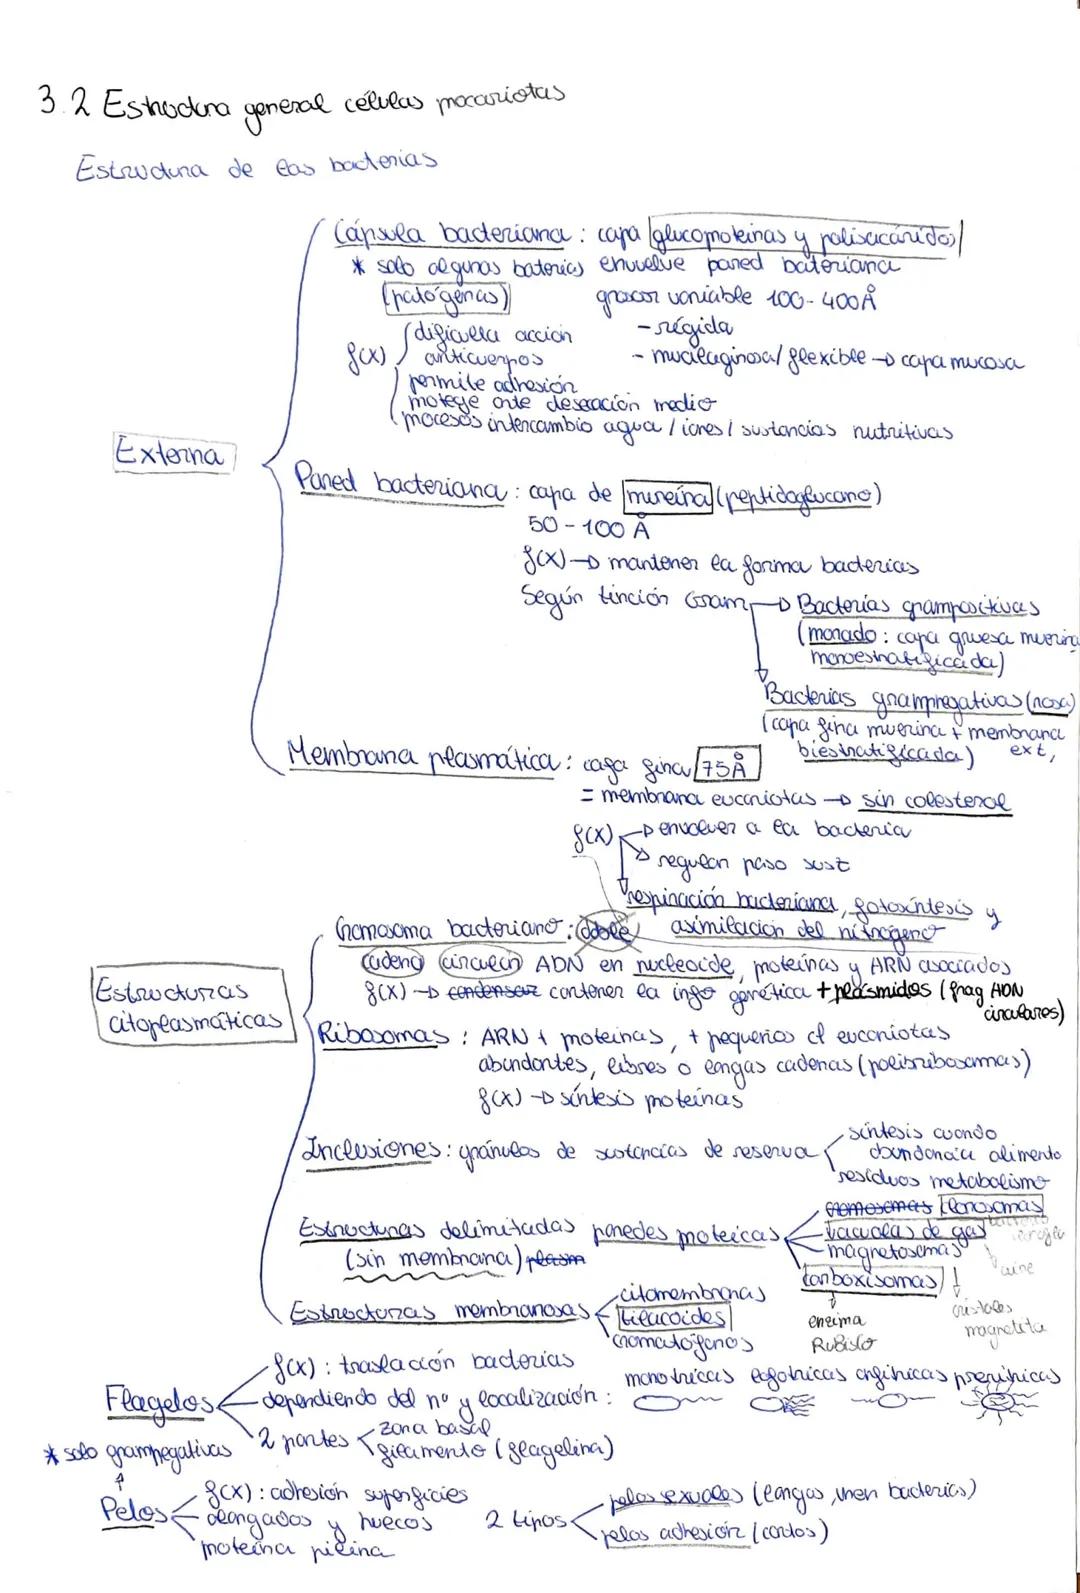 3.2 Estructura general células procariotas
Estructura de las bacterias
Cápsula bacteriana: capa glucoproteínas y polisacáridos
* solo algunas baterias envuelve pared bateriana
(patógenas) grosor variable 100-400Å
f(x) dificulta acción - rígida
anticuerpos - mucilaginosa/flexible → capa mucosa
permite adhesión
protege ante desecación medio
procesos intercambio agua / iones / sustancias nutritivas
Externa
Pared bacteriana: capa de mureína (peptidoglucano)
50-100 Å
f(x) → mantener la forma bacterias
Según tinción Gram → Bacterias grampositivas
(morado: capa gruesa mureina
monoestratificada)
Bacterias gramnegativas (rosa)
(capa fina mureina + membrana
biestratificada) ext,
Membrana plasmática: capa fina 75Å
= membrana eucariotas → sin colesterol
f(x) → envolver a la bacteria
→ regulan paso sust
respiración bacteriana, fotosíntesis y
asimilación del nitrógeno
Cromosoma bacteriano: doble
cadena circular ADN en nucleoide, proteínas y ARN asociados
f(x) → condensar contener la info genética + plásmidos (frag ADN
circulares)
Estructuras
citoplasmáticas
Ribosomas: ARN + proteínas, + pequeños cl eucariotas
abundantes, libres o largas cadenas (poliribosomas)
f(x) → síntesis proteínas
Inclusiones: gránulos de sustancias de reserva
síntesis cuando
abundancia alimento
residuos metabolismo
Estructuras delimitadas paredes proteicas
(sin membrana) plasm
cromosomas clorosomas
vacuolas de gas
magnetosomas aire
carboxisomas cristales
enzima magnetita
Rubisco
Estructuras membranosas
citomembranas
tilacoides
cromatóforos
Flagelos
f(x): traslación bacterias
dependiendo del nº y localización: monotricas lofotricas anfitricas peritricas
2 partes zona basal
filamento (flagelina)
* solo gramnegativas
Pelos
f(x): adhesión superficies
alargados y huecos
proteína pilina
2 tipos pelos sexuales (largos, unen bacterias)
pelos adhesión (cortos)